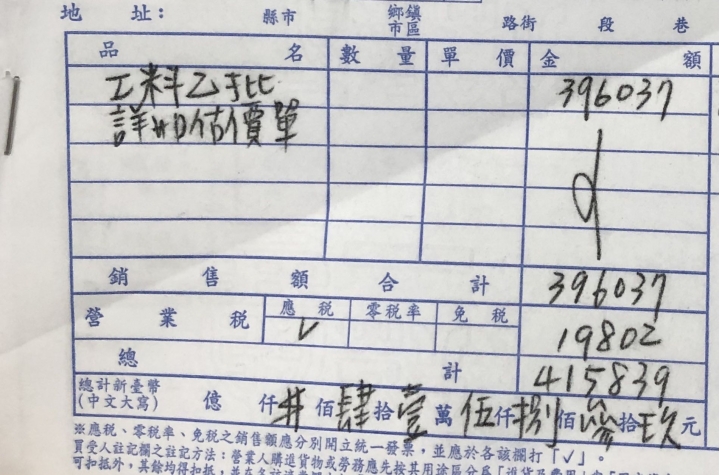 地 址： 縣市 鄉鎮市區 路街 段 巷
品 名 數 量 單 價 金 額
工料乙批 396037
詳如估價單
銷 售 額 合 計 396037
營 業 稅 應 稅 零稅率 免 稅
✓ 19802
總 計 415839
總計新臺幣
(中文大寫) 億 仟 佰肆拾壹萬伍仟捌佰參拾玖元
※應稅、零稅率、免稅之銷售額應分別開立統一發票，並應於各該欄打「✓」。
買受人註記欄之註記方法：營業人購進貨物或勞務應先按其用途區分為「進貨及費用」
可扣抵外，其餘均得扣抵，並在各該